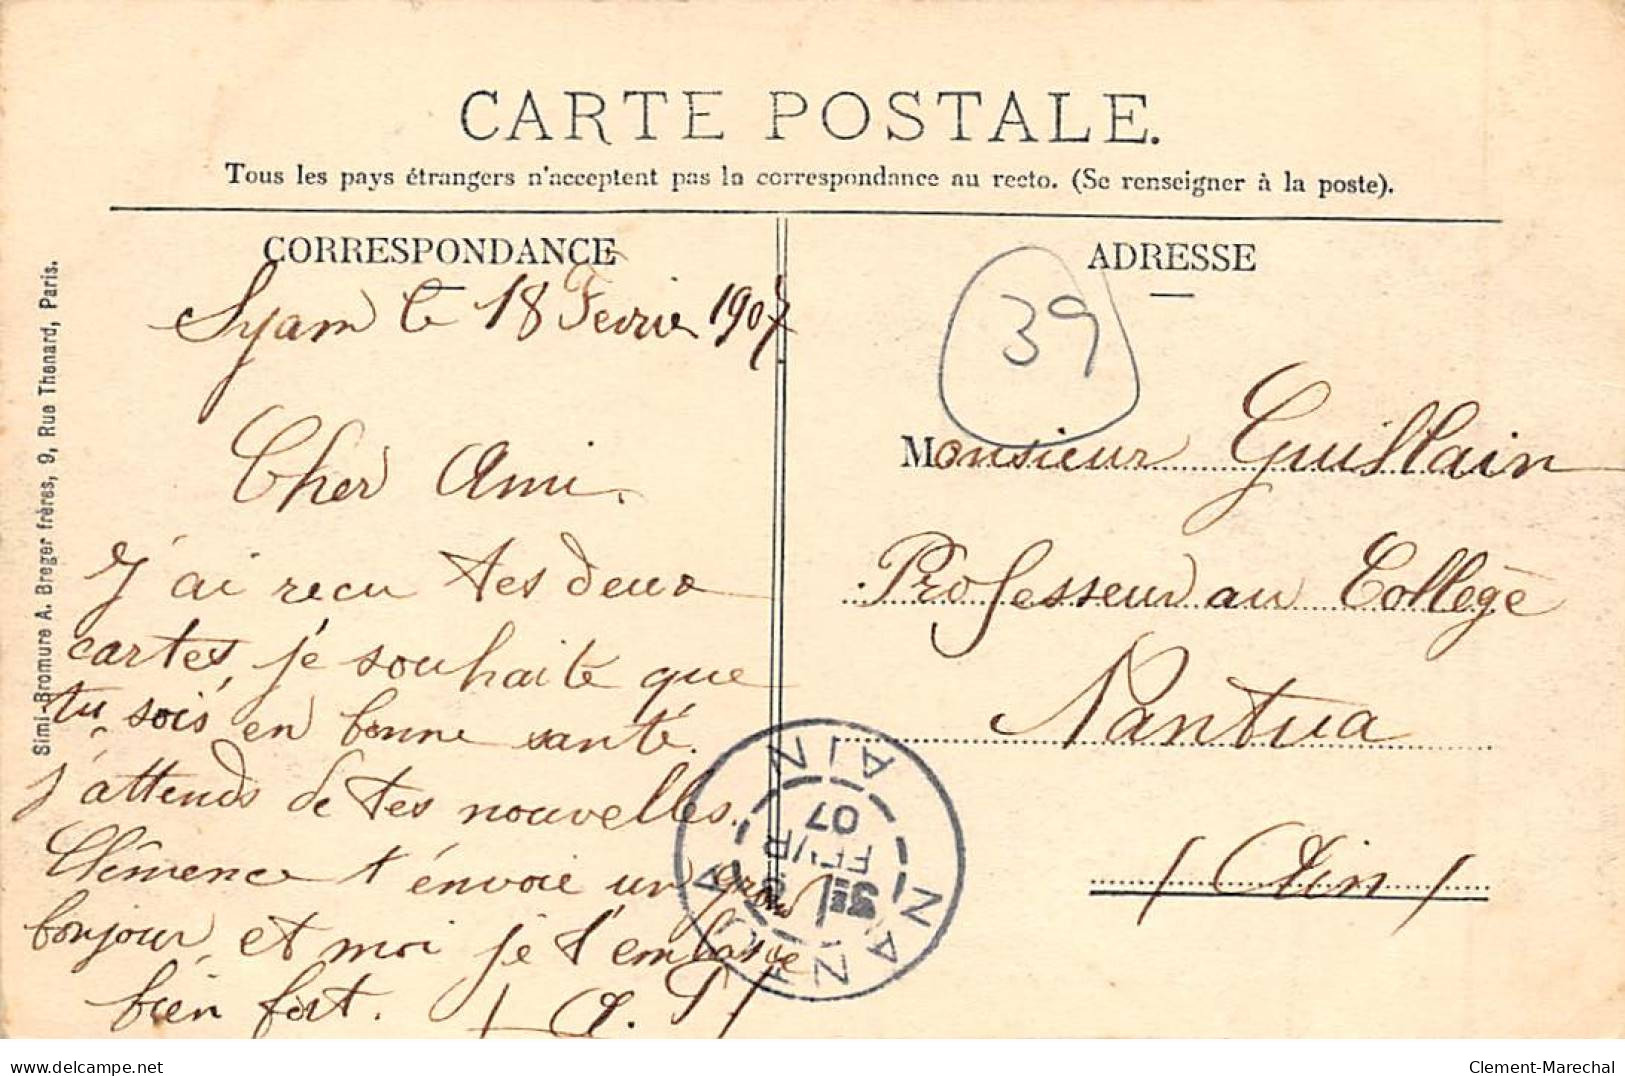 CARTE POSTALE.
Tous les pays étrangers n'acceptent pas la correspondance au recto. (Se renseigner à la poste).
CORRESPONDANCE
Syam le 18 Fevrier 1907
Cher Ami.
J'ai recu tes deux
cartes, je souhaite que
tu sois en bonne santé.
j'attends de tes nouvelles.
Clémence t'envoie un gros
bonjour, et moi je t'embrasse
bien fort.
Simi-Bromure A. Breger frères, 9, Rue Thenard, Paris.
ADRESSE
39
Monsieur Guillain
Professeur au Collège
Nantua
(Ain)
NANTUA
AIN
FEVR
07
delcampe.net
Clement-Marechal